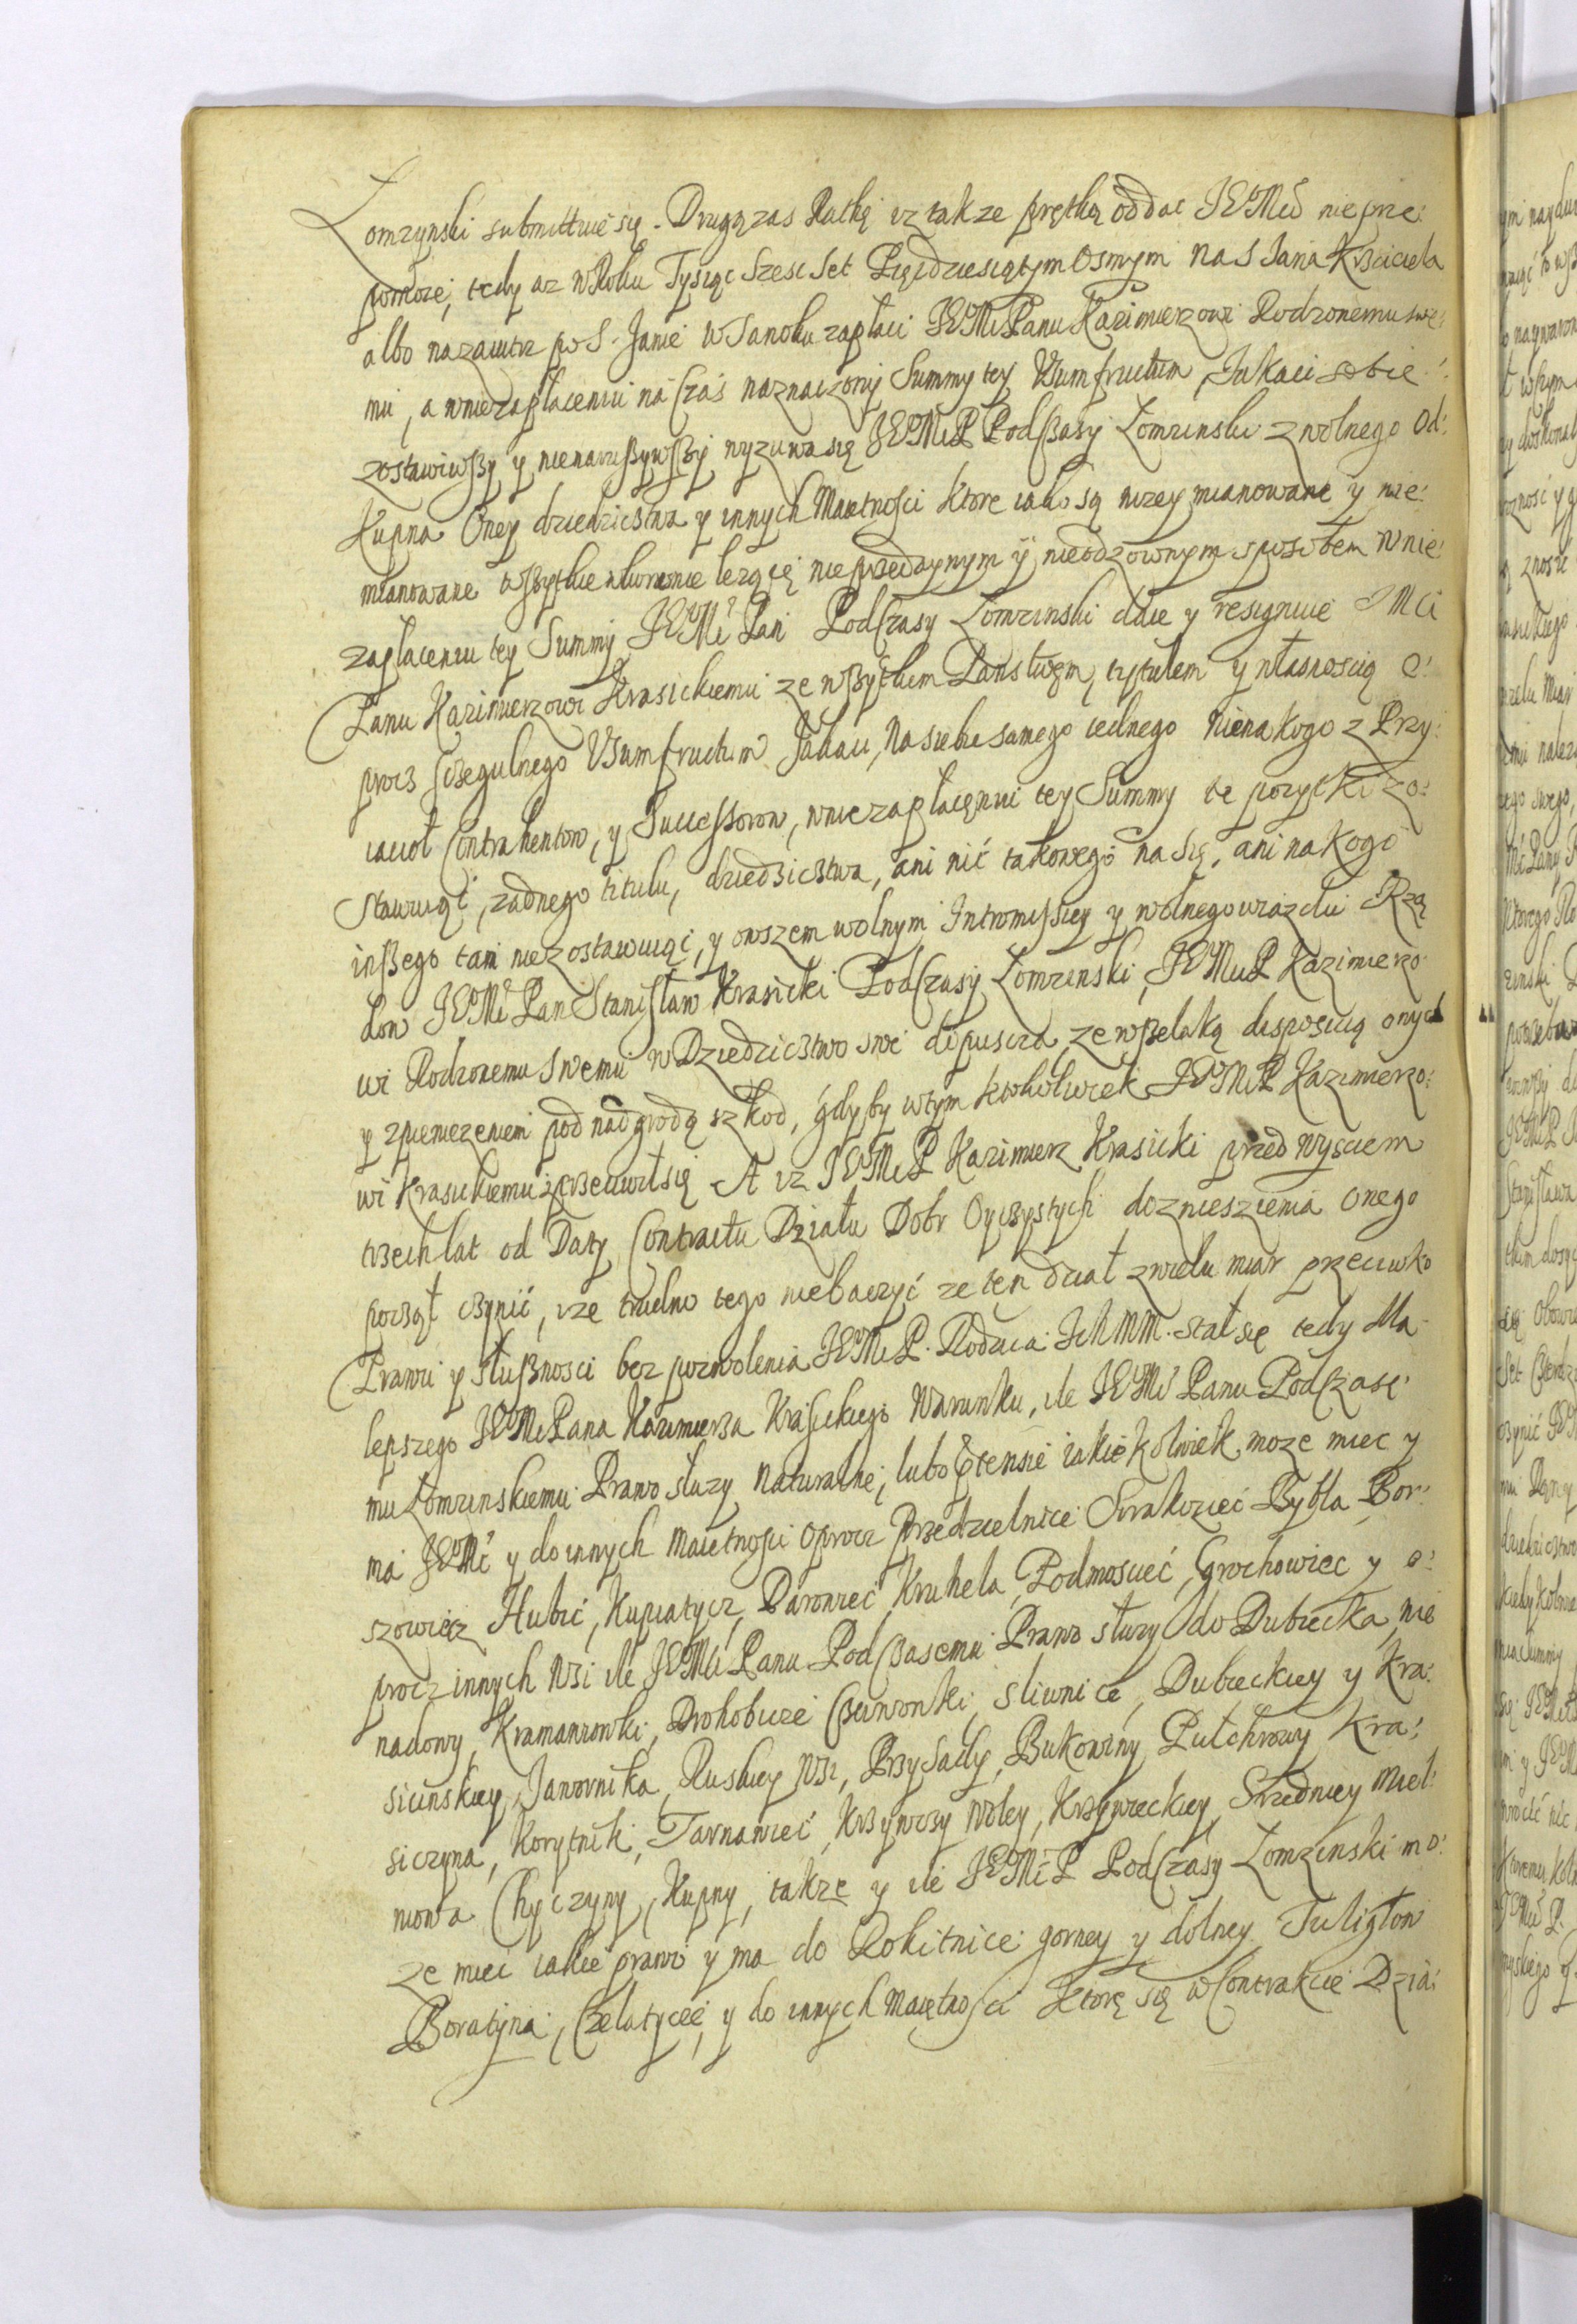 Łomzynski submittuie się. Drugą zas Ratkę iz takze prętką oddac JEoMci nieprze:
pomoze, tedy az w Roku Tysiąc Szesc Set Pięcdziesiątym Osmym na S Jana Krzciciela
albo nazaiutrz po S. Janie w Sanoku zapłaci JEoMci Panu Kazimierzowi Rodzonemu swe:
mu, a wniezapłaceniu na czas naznaczony Summy tey Usumfructum Jakaci sobie
zostawiwszy y nienaruszywszy wyzuwa się JEoMci P Podczaszy Łomzinski z wolnego Od:
kupna Oney dziedzictwa y innych Maiętnosci ktore iako są nizey mianowane y nie:
mianowane wszytkie lezące nieprzedaynym y nieodzownym sposobem w nie
zapłaceniu tey Summy JEoMci Pan Podczaszy Łomzinski daie y resignuie JMci
Panu Kazimierzowi Krasickiemu ze wszytkiem Panstwem, tytułem y własnoscią o:
procz szczegulnego Usumfructum Jakaci, na siebie samego iednego nie na kogo z Przy:
iacioł Contrahentow, y Successorow, wniezapłaceniu tey Summy te pozytki zo:
stawuiąc, zadnego titulu, dziedzictwa, ani nic takowego na się, ani na kogo
inszego tam nie zostawuiąc, y owszem wolnym Intromissiey y wolnego wiazdu Rzą
dow JEoMci Pan Stanisław Krasicki Podczaszy Łomzinski, JEoMci P Kazimierzo
wi Rodzonemu swemu w Dziedzictwo swe dopuscza, ze wszelaką disposicią onych
y zpieniezeniem pod nadgrodą szkod, gdyby wtym ktokolwiek JEoMci P Kazimierzo:
wi Krasickiemu przeciwił się A iz JEoMci P Kazimierz Krasicki przed wysciem
trzech lat od Daty Contractu Działu Dobr Oyczystych do znieszienia onego
począł czynić, ize trudno tego niebaczyć ze ten dział z wielu miar przeciwko
Prawu y słusznosci bez pozwolenia JEoMci P. Rodzica IchMM. stał się tedy dla
lepszego JEoMci Pana Kazimierza Krasickiego Warunku, ile JEoMci Panu Podczasze:
mu Łomzinskiemu Prawo słuzy Naturalne, lubo prtensie iakiekolwiek moze miec y
ma JEoMc y do innych Maiętnosci oprocz Przedzielnice Sirakoziec Rybła Bor:
szowicz Hubic, Kupiatycz, Darowiec Kruhela, Podmosciec, Grochowiec y o:
procz innych Wsi ile JEoMci Panu Podczaszemu Prawo słuzy do Dubiecka, nie
nadowy, Kramarzowki, Drohobicze Czerwonki, Sliwnice, Dubieckiey y Kra:
sicinskiey, Janownika, Ruskiey Wsi, Przysady, Bukowiny, Pulchrowy Kra:
siczyna, Korytnik, Tarnawiec, Krzywczy Woley, Krzywieckiey, Sredniey Miel
niowa Chyczyny, Kupny, takze y ile JEoMci P Podczaszy Łomzinski mo:
ze miec iakie prawo y ma do Rokitnice gorney y dolney Tuligłow
Boratyna, Czelatycze, y do innych Maiętnosci ktore się w Contrakcie Dzia: